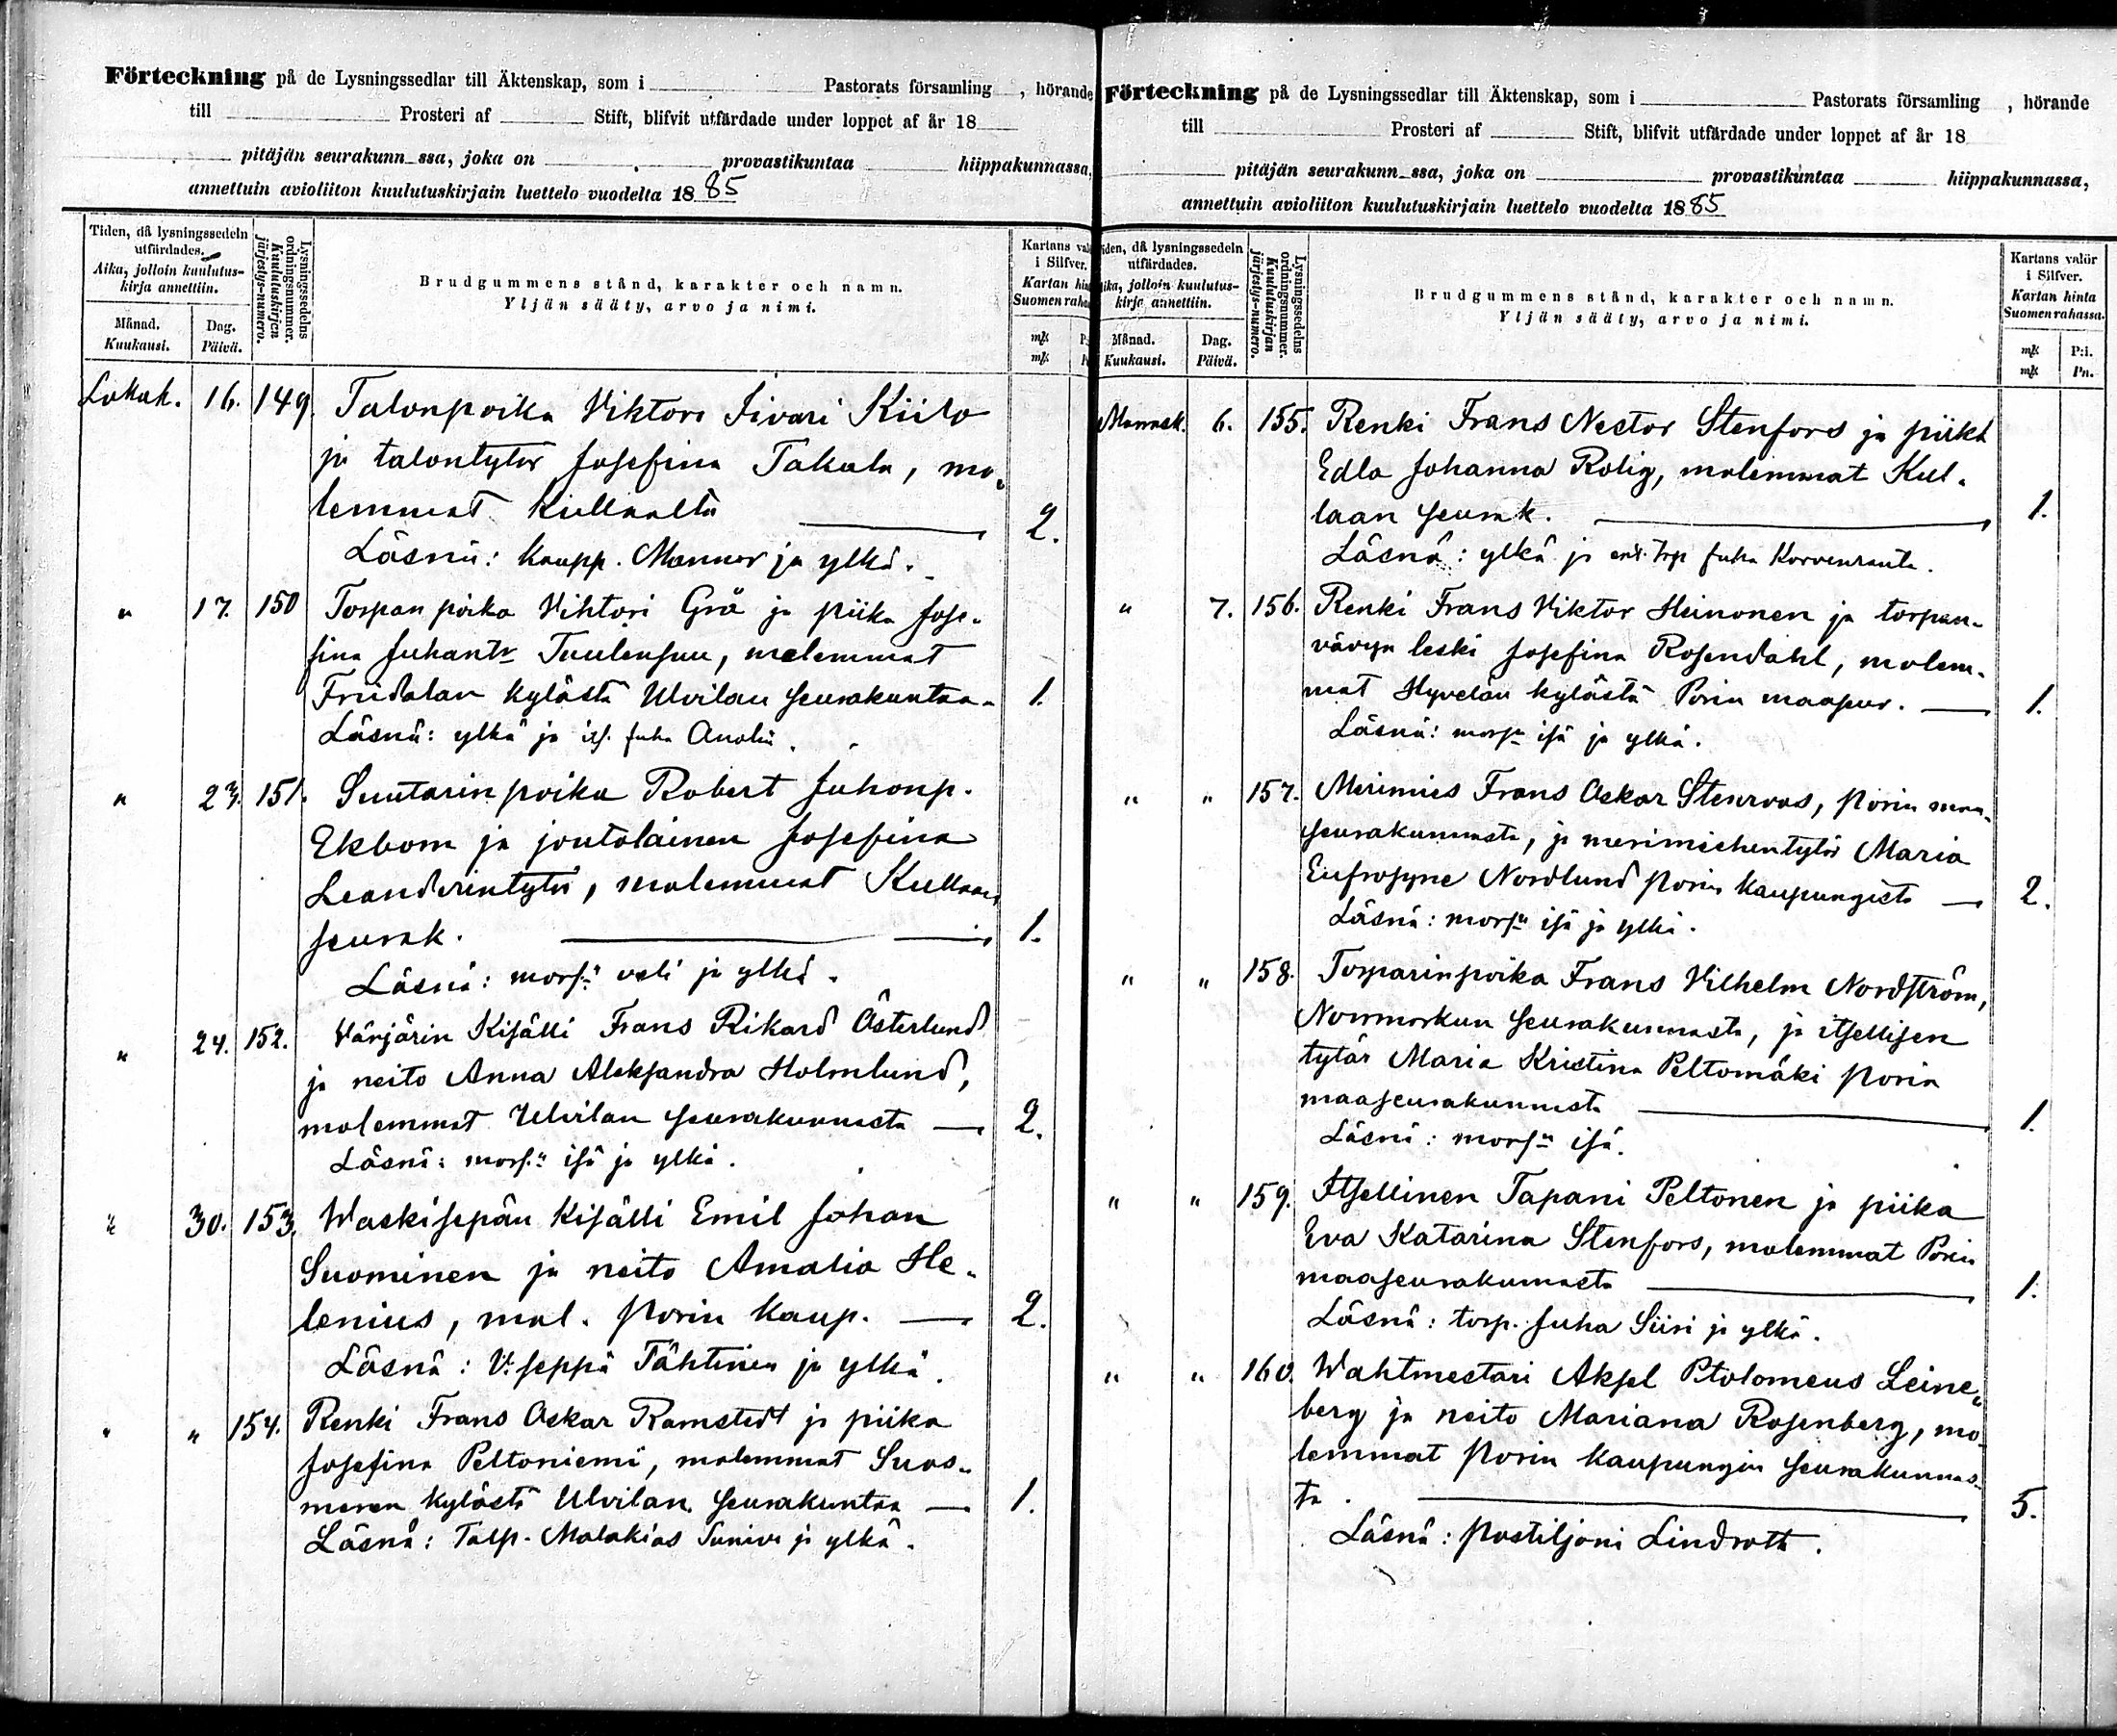 Förteckning på de Lysningssedlar till Äktenskap, som i Pastorats församling , hörande
till Prosteri af Stift, blifvit utfärdade under loppet af år 18
pitäjän seurakunn ssa, joka on provastikuntaa hiippakunnassa,
annettuin avioliiton kuulutuskirjain luettelo vuodelta 1885
Tiden, då lysningssedeln utfärdades.
Aika, jolloin kuulutuskirja annettiin.
Månad. Kuukausi.
Dag. Päivä.
Lysningssedelns ordningsnummer. Kuulutuskirjan järjestys-numero.
Brudgummens stånd, karakter och namn.
Yljän sääty, arvo ja nimi.
Kartans val
i Silfver.
Kartan hin
Suomen raha
mk
mk
Lokak. 16. 149. Talonpoika Viktori Iivari Kiilo
ja talontytär Josefina Takala, mo-
lemmat Kullaalta 2.
Läsnä: Kaupp. Manner ja ylkä.
" 17. 150 Torpan poika Vihtori Grö ja piika Jose-
fina Juhantr Tuulensuu, molemmat
Fridalan kylästä Ulvilan seurakuntaa 1.
Läsnä: ylkä ja its. Juha Anolin.
" 23. 151. Suutarinpoika Robert Juhonp.
Ekbom ja joutolainen Josefina
Leanderintytär, molemmat Kullaan
seurak. 1.
Läsnä: mors:n veli ja ylkä.
" 24. 152. Värjärin Kisälli Frans Rikard Österlund
ja neito Anna Aleksandra Holmlund,
molemmat Ulvilan seurakunnasta 2.
Läsnä: mors:n isä ja ylkä.
" 30. 153. Waskisepän Kisälli Emil Johan
Suominen ja neito Amalia He-
lenius, mol. Porin Kaup. 2.
Läsnä: V:seppä Tähtinen ja ylkä.
" " 154. Renki Frans Oskar Ramstedt ja piika
Josefina Peltoniemi, molemmat Suos-
meren kylästä Ulvilan seurakuntaa 1.
Läsnä: Talp. Malakias ja ylkä.
Förteckning på de Lysningssedlar till Äktenskap, som i Pastorats församling , hörande
till Prosteri af Stift, blifvit utfärdade under loppet af år 18
pitäjän seurakunn ssa, joka on provastikuntaa hiippakunnassa,
annettuin avioliiton kuulutuskirjain luettelo vuodelta 1885
iden, då lysningssedeln utfärdades.
ika, jolloin kuulutuskirja annettiin.
Månad. Kuukausi.
Dag. Päivä.
Lysningssedelns ordningsnummer. Kuulutuskirjan järjestys-numero.
Brudgummens stånd, karakter och namn.
Yljän sääty, arvo ja nimi.
Kartans valör
i Silfver.
Kartan hinta
Suomen rahassa.
mk P:i.
mk Pn.
Marrask. 6. 155. Renki Frans Nestor Stenfors ja piika
Edla Johanna Rolig, molemmat Kul-
laan seurak. 1.
Läsnä: ylkä ja ent. trp Juha Korvenranta.
" 7. 156. Renki Frans Viktor Heinonen ja torpan-
vävyn leski Josefina Rosendahl, molem-
mat Hyvelän kylästä Porin maaseur. 1.
Läsnä: mors:n isä ja ylkä.
" " 157. Merimies Frans Oskar Stenroos, Porin maa-
seurakunnasta, ja merimiehentytär Maria
Eufrosyne Nordlund Porin kaupungista 2.
Läsnä: mors:n isä ja ylkä.
" " 158. Torparinpoika Frans Vilhelm Nordström,
Noormarkun seurakunnasta, ja itsellisen
tytär Maria Kristina Peltomäki Porin
maaseurakunnasta 1.
Läsnä: mors:n isä.
" " 159. Itsellinen Tapani Peltonen ja piika
Eva Katarina Stenfors, molemmat Porin
maaseurakunnasta 1.
Läsnä: torp. Juha Siiri ja ylkä.
" " 160. Wahtmestari Aksel Ptolomeus Leine-
berg ja neito Mariana Rosenberg, mo-
lemmat Porin kaupungin seurakunnas-
ta. 5.
Läsnä: postiljoni Lindroth.